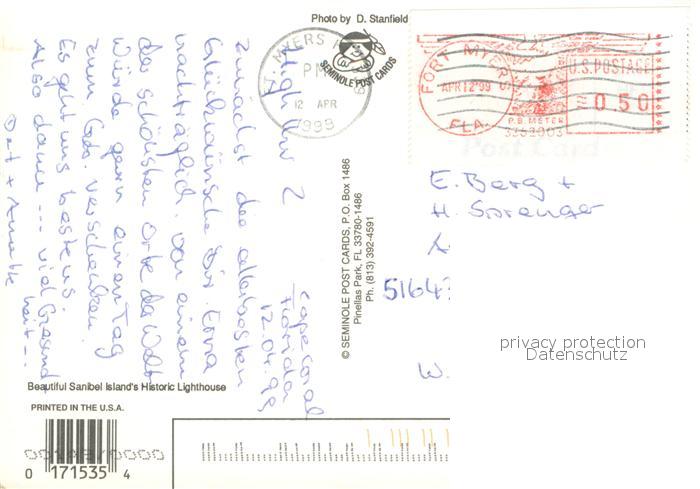 Photo by D. Stanfield
FT. MYERS
PM
12 APR
1999
SEMINOLE POST CARDS
FORT MYERS
APR 12'99
FLA.
U.S. POSTAGE
0.50
P.B. METER
Post Card
E. Berg +
H. Sprenger
51643
W.
privacy protection
Datenschutz
© SEMINOLE POST CARDS, P.O. Box 1486
Pinellas Park, FL 33780-1486
Ph. (813) 392-4591
Cape Coral
Florida
12.04.99
Ihr 2
zunächst die allerbesten
Glückwünsche für Erna
nachträglich. Von einem
der schönsten Orte der Welt
würde gern einen Tag
zum Geb. verschenken.
Es geht uns bestens.
Also dann --- viel Gesund-
heit ---
Beautiful Sanibel Island's Historic Lighthouse
PRINTED IN THE U.S.A.
0 171535 4